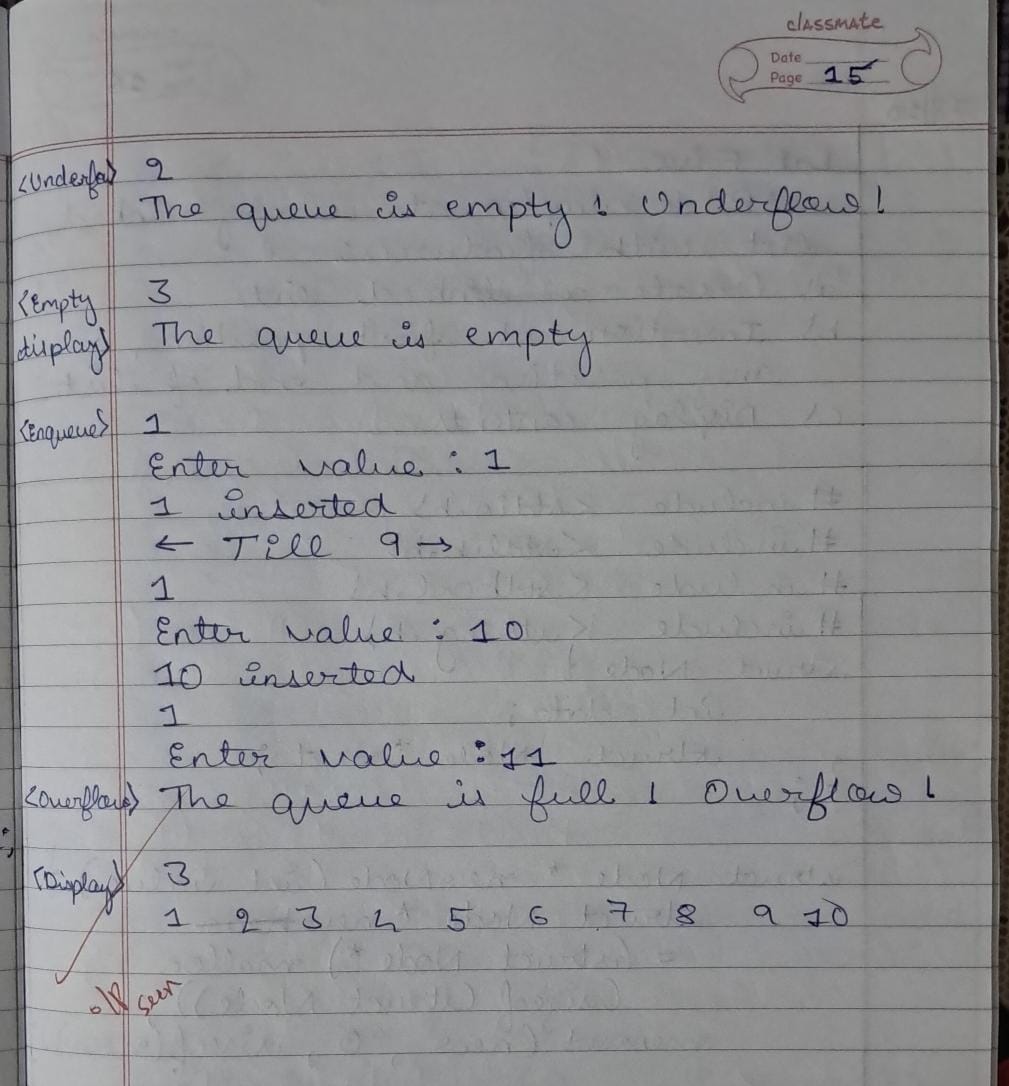 classmate
Date
Page 15
<Underflow> 2
The queue is empty ! Underflow !
<Empty 3
display> The queue is empty
<Enqueue> 1
Enter value : 1
1 inserted
← Till 9 →
1
Enter value : 10
10 inserted
1
Enter value : 11
<Overflow> The queue is full ! Overflow !
<Display> 3
1 2 3 4 5 6 7 8 9 10
o/p seen